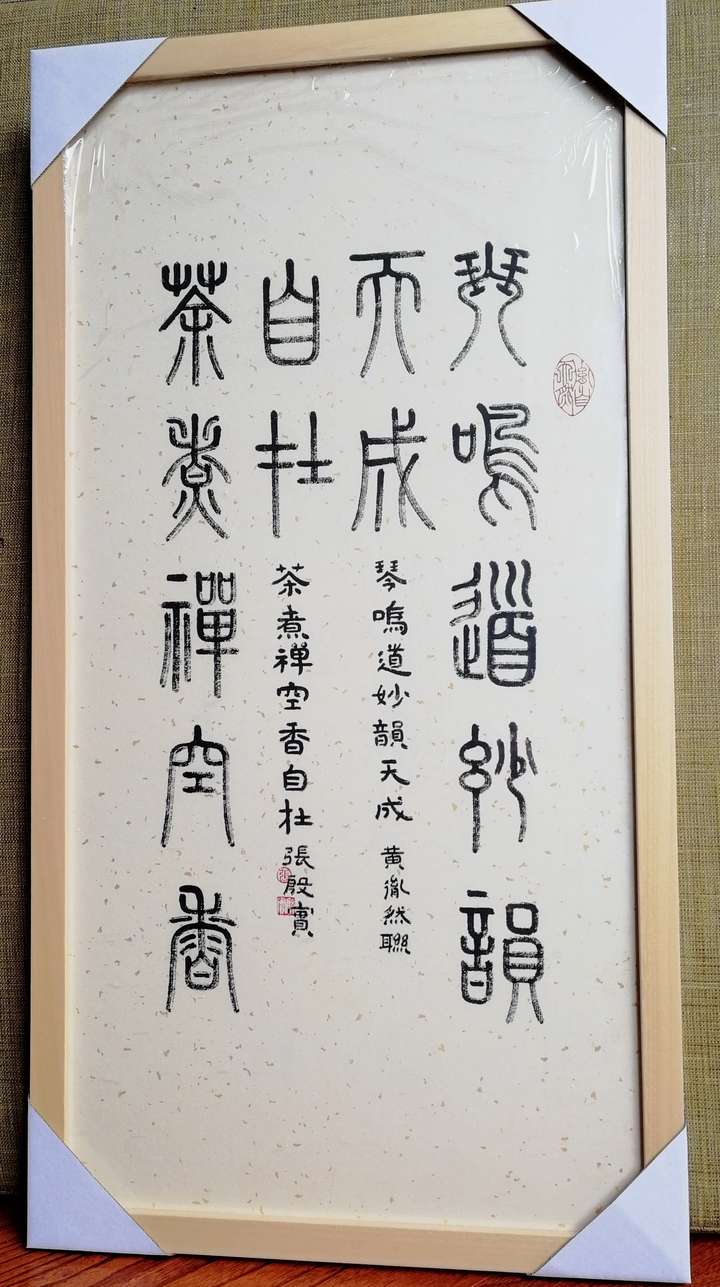 琴鳴道妙韻
天成
琴鳴道妙韻天成 黄胤然聯
茶煮禪空香
自在
茶煮禪空香自在 張殷實